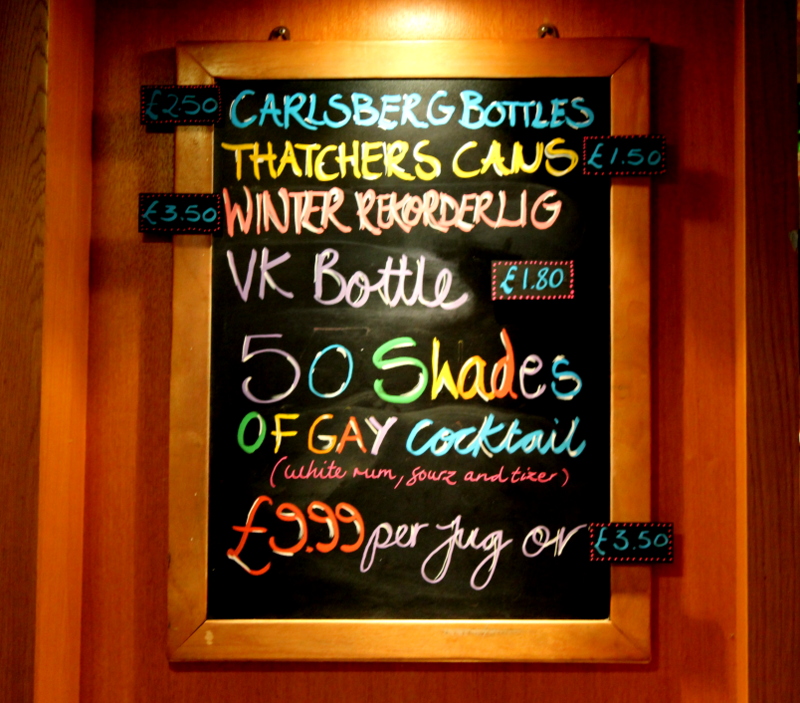 £2.50 CARLSBERG BOTTLES
THATCHERS CANS £1.50
£3.50 WINTER REKORDERLIG
VK Bottle £1.80
50 Shades
OF GAY cocktail
(white rum, sourz and tizer)
£9.99 per Jug or £3.50